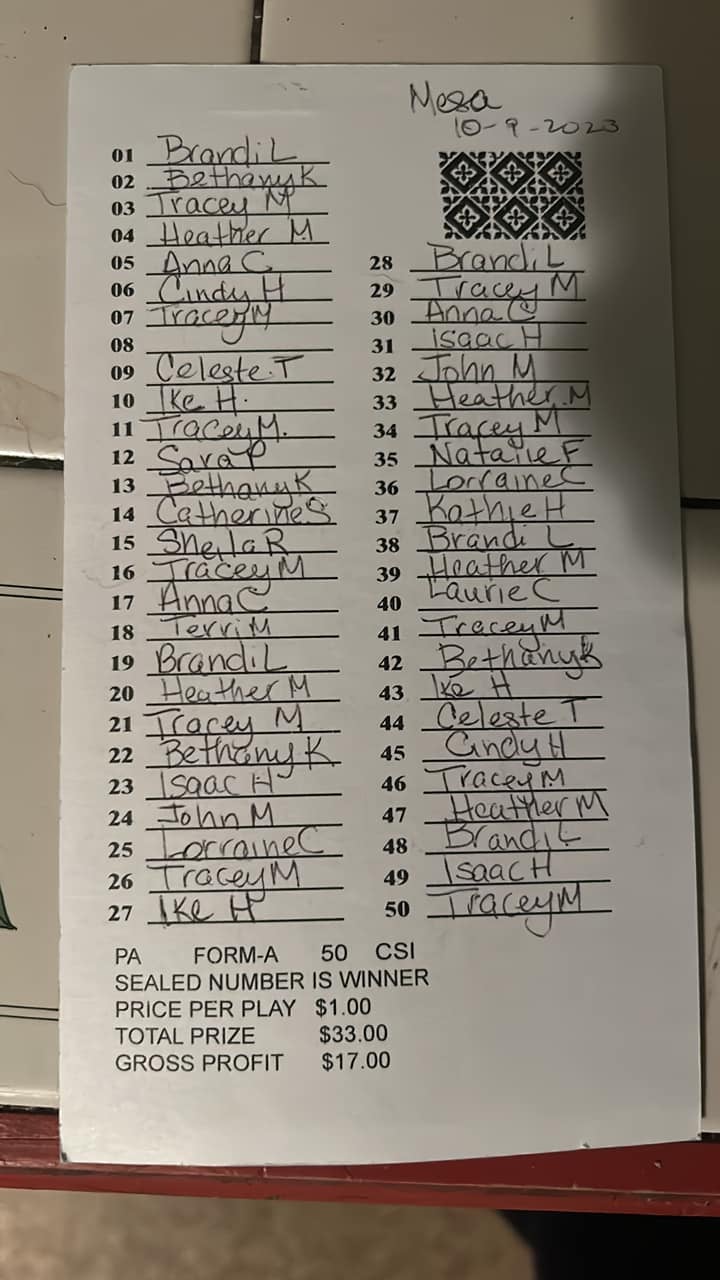 Mesa
10-9-2023
01 Brandi L
02 Bethany K
03 Tracey M
04 Heather M
05 Anna C
06 Cindy H
07 Tracey M
08
09 Celeste T
10 Ike H.
11 Tracey M.
12 Sara P
13 Bethany K
14 Catherine S
15 Sheila R
16 Tracey M
17 Anna C
18 Terri M
19 Brandi L
20 Heather M
21 Tracey M
22 Bethany K
23 Isaac H
24 John M
25 Lorraine C
26 Tracey M
27 Ike H
28 Brandi L
29 Tracey M
30 Anna C
31 Isaac H
32 John M
33 Heather M
34 Tracey M
35 Natalie F
36 Lorraine C
37 Kathie H
38 Brandi L
39 Heather M
40 Laurie C
41 Tracey M
42 Bethany K
43 Ike H
44 Celeste T
45 Cindy H
46 Tracey M
47 Heather M
48 Brandi L
49 Isaac H
50 Tracey M
PA FORM-A 50 CSI
SEALED NUMBER IS WINNER
PRICE PER PLAY $1.00
TOTAL PRIZE $33.00
GROSS PROFIT $17.00